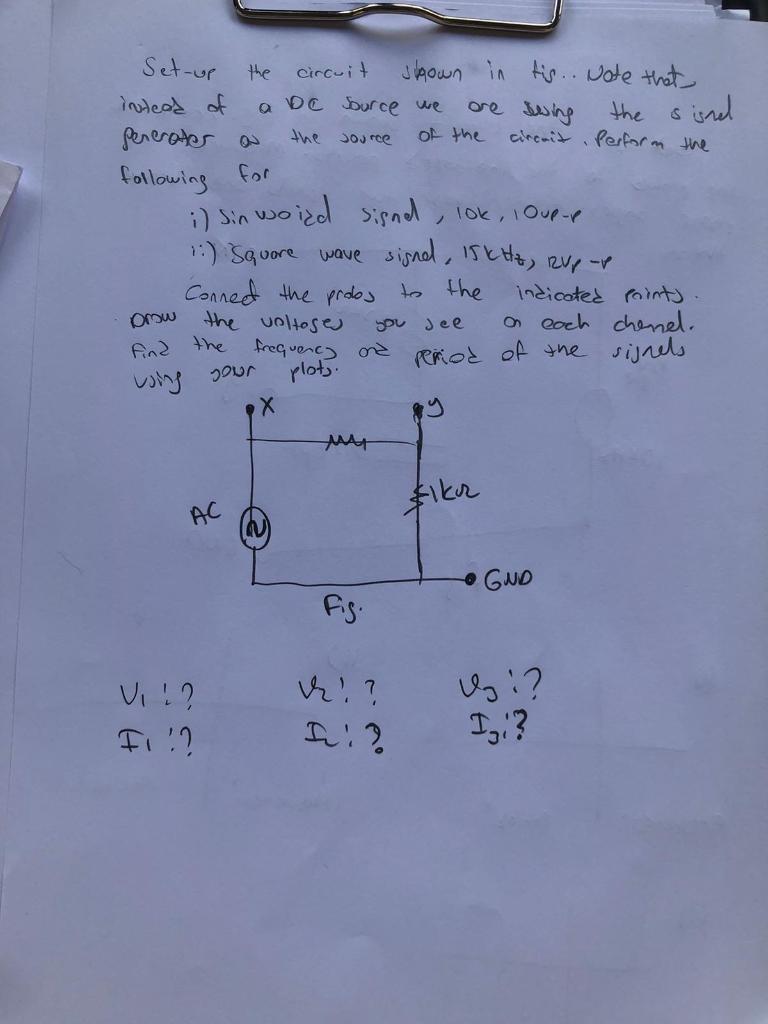 Set-up the circuit shown in fig.. Note that,
instead of a DC source we are using the signal
generator as the source of the circuit. Perform the
following for
i) Sinwoizd signal, 10k, 10Vp-p
ii) Square wave signal, 15kHz, 12Vp-p
Connect the probes to the indicated points.
Draw the voltages you see on each channel.
Find the frequency and period of the signals
using your plots.
X
y
1kΩ
AC
GND
Fig.
V1:? V2:? V3:?
I1:? I2:? I3:?